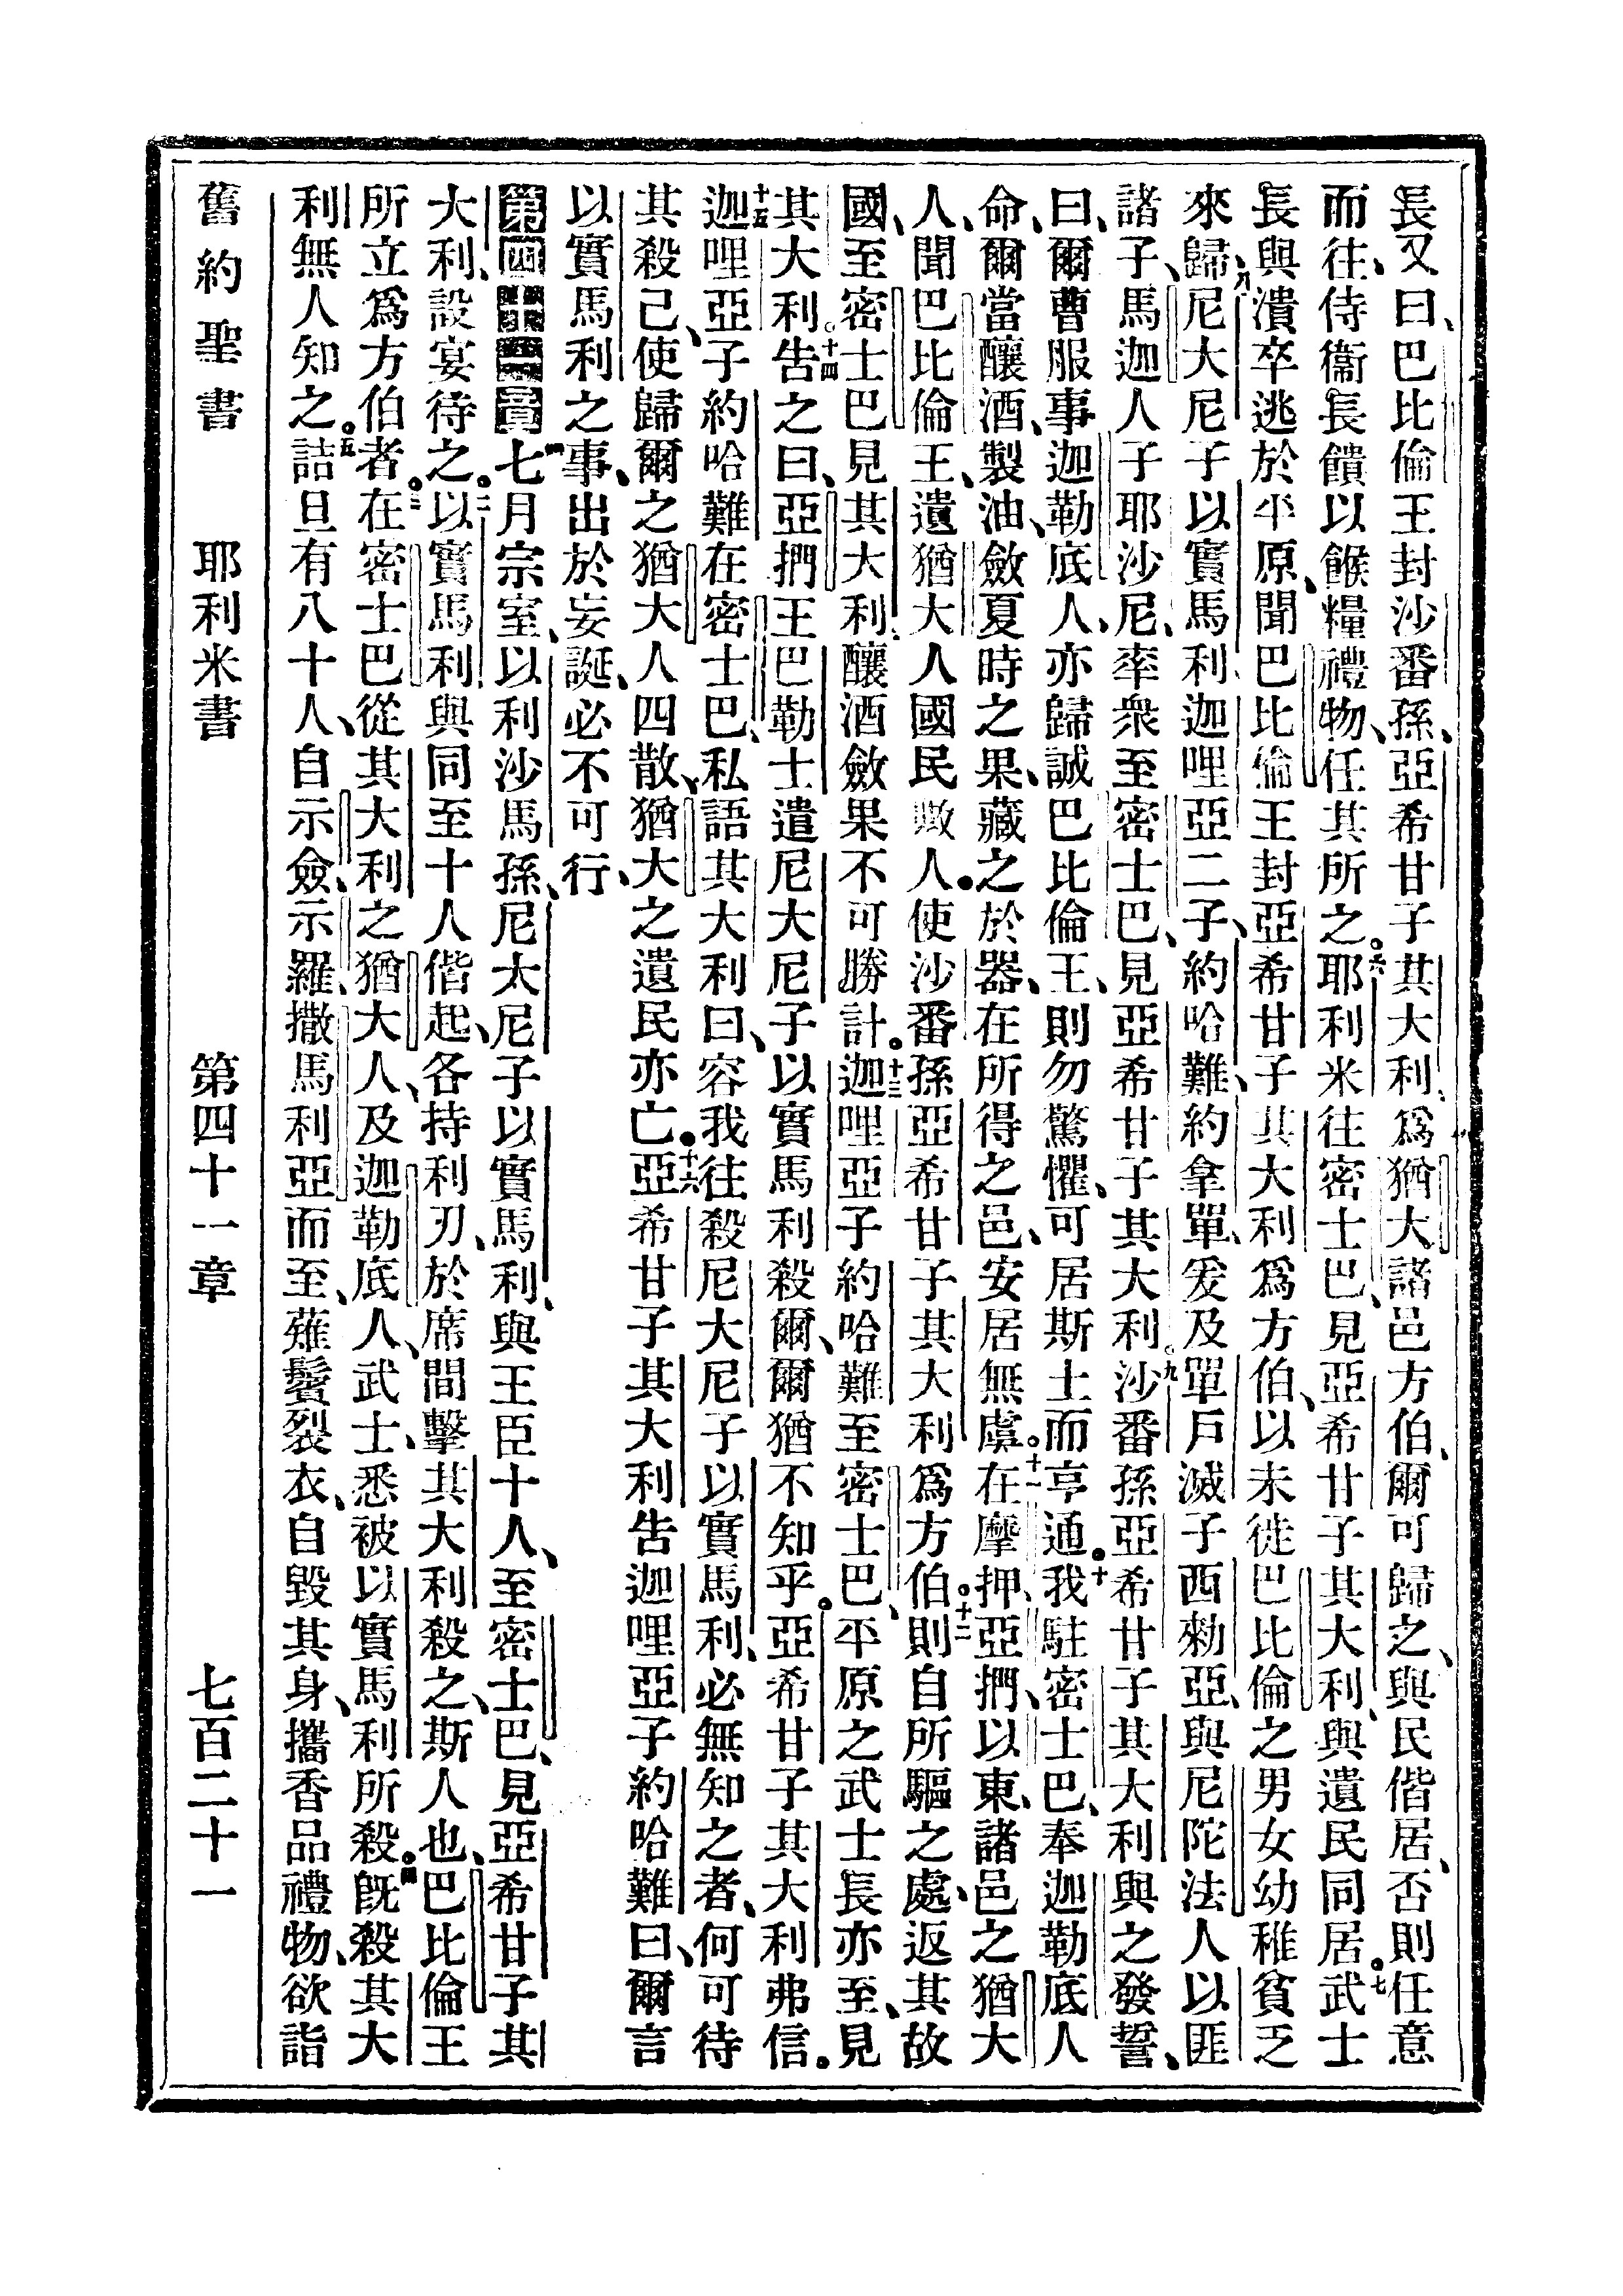 長又曰、巴比倫王封沙番孫、亞希甘子其大利爲猶大諸邑方伯、爾可歸之、與民偕居、否則任意
而往、侍衞長饋以餱糧禮物、任其所之。六耶利米往密士巴、見亞希甘子其大利、與遺民同居。七武士
長與潰卒逃於平原、聞巴比倫王封亞希甘子其大利爲方伯、以未徙巴比倫之男女幼稚貧乏
來歸、八尼大尼子以實馬利、迦哩亞二子、約哈難、約拿單、爰及單戶滅子西勑亞、與尼陀法人以匪
諸子、馬迦人子耶沙尼、率衆至密士巴、見亞希甘子其大利。九沙番孫亞希甘子其大利與之發誓、
曰、爾曹服事迦勒底人、亦歸誠巴比倫王、則勿驚懼、可居斯土而亨通。十我駐密士巴、奉迦勒底人
命、爾當釀酒、製油、斂夏時之果、藏之於器、在所得之邑、安居無虞。十一在摩押、亞捫、以東、諸邑之猶大
人、聞巴比倫王、遺猶大人國民數人。使沙番孫亞希甘子其大利爲方伯。十二則自所驅之處、返其故
國、至密士巴見其大利釀酒斂果不可勝計。十三迦哩亞子約哈難至密士巴、平原之武士長亦至、見
其大利。十四告之曰、亞捫王巴勒士遣尼大尼子以實馬利殺爾、爾猶不知乎。亞希甘子其大利弗信。
十五迦哩亞子約哈難在密士巴、私語其大利曰、容我往殺尼大尼子以實馬利、必無知之者、何可待
其殺己、使歸爾之猶大人四散、猶大之遺民亦亡。十六亞希甘子其大利告迦哩亞子約哈難曰、爾言
以實馬利之事、出於妄誕、必不可行、
第四十一章 一七月宗室、以利沙馬孫、尼太尼子以實馬利、與王臣十人、至密士巴、見亞希甘子其
大利、設宴待之。二以實馬利與同至十人偕起、各持利刃、於席間擊其大利殺之、斯人也、巴比倫王
所立爲方伯者。三在密士巴從其大利之猶大人、及迦勒底人、武士、悉被以實馬利所殺。四旣殺其大
利無人知之。五詰旦有八十人、自示劍、示羅、撒馬利亞而至、薙鬢裂衣、自毀其身、攜香品禮物、欲詣
舊約聖書 耶利米書 第四十一章 七百二十一